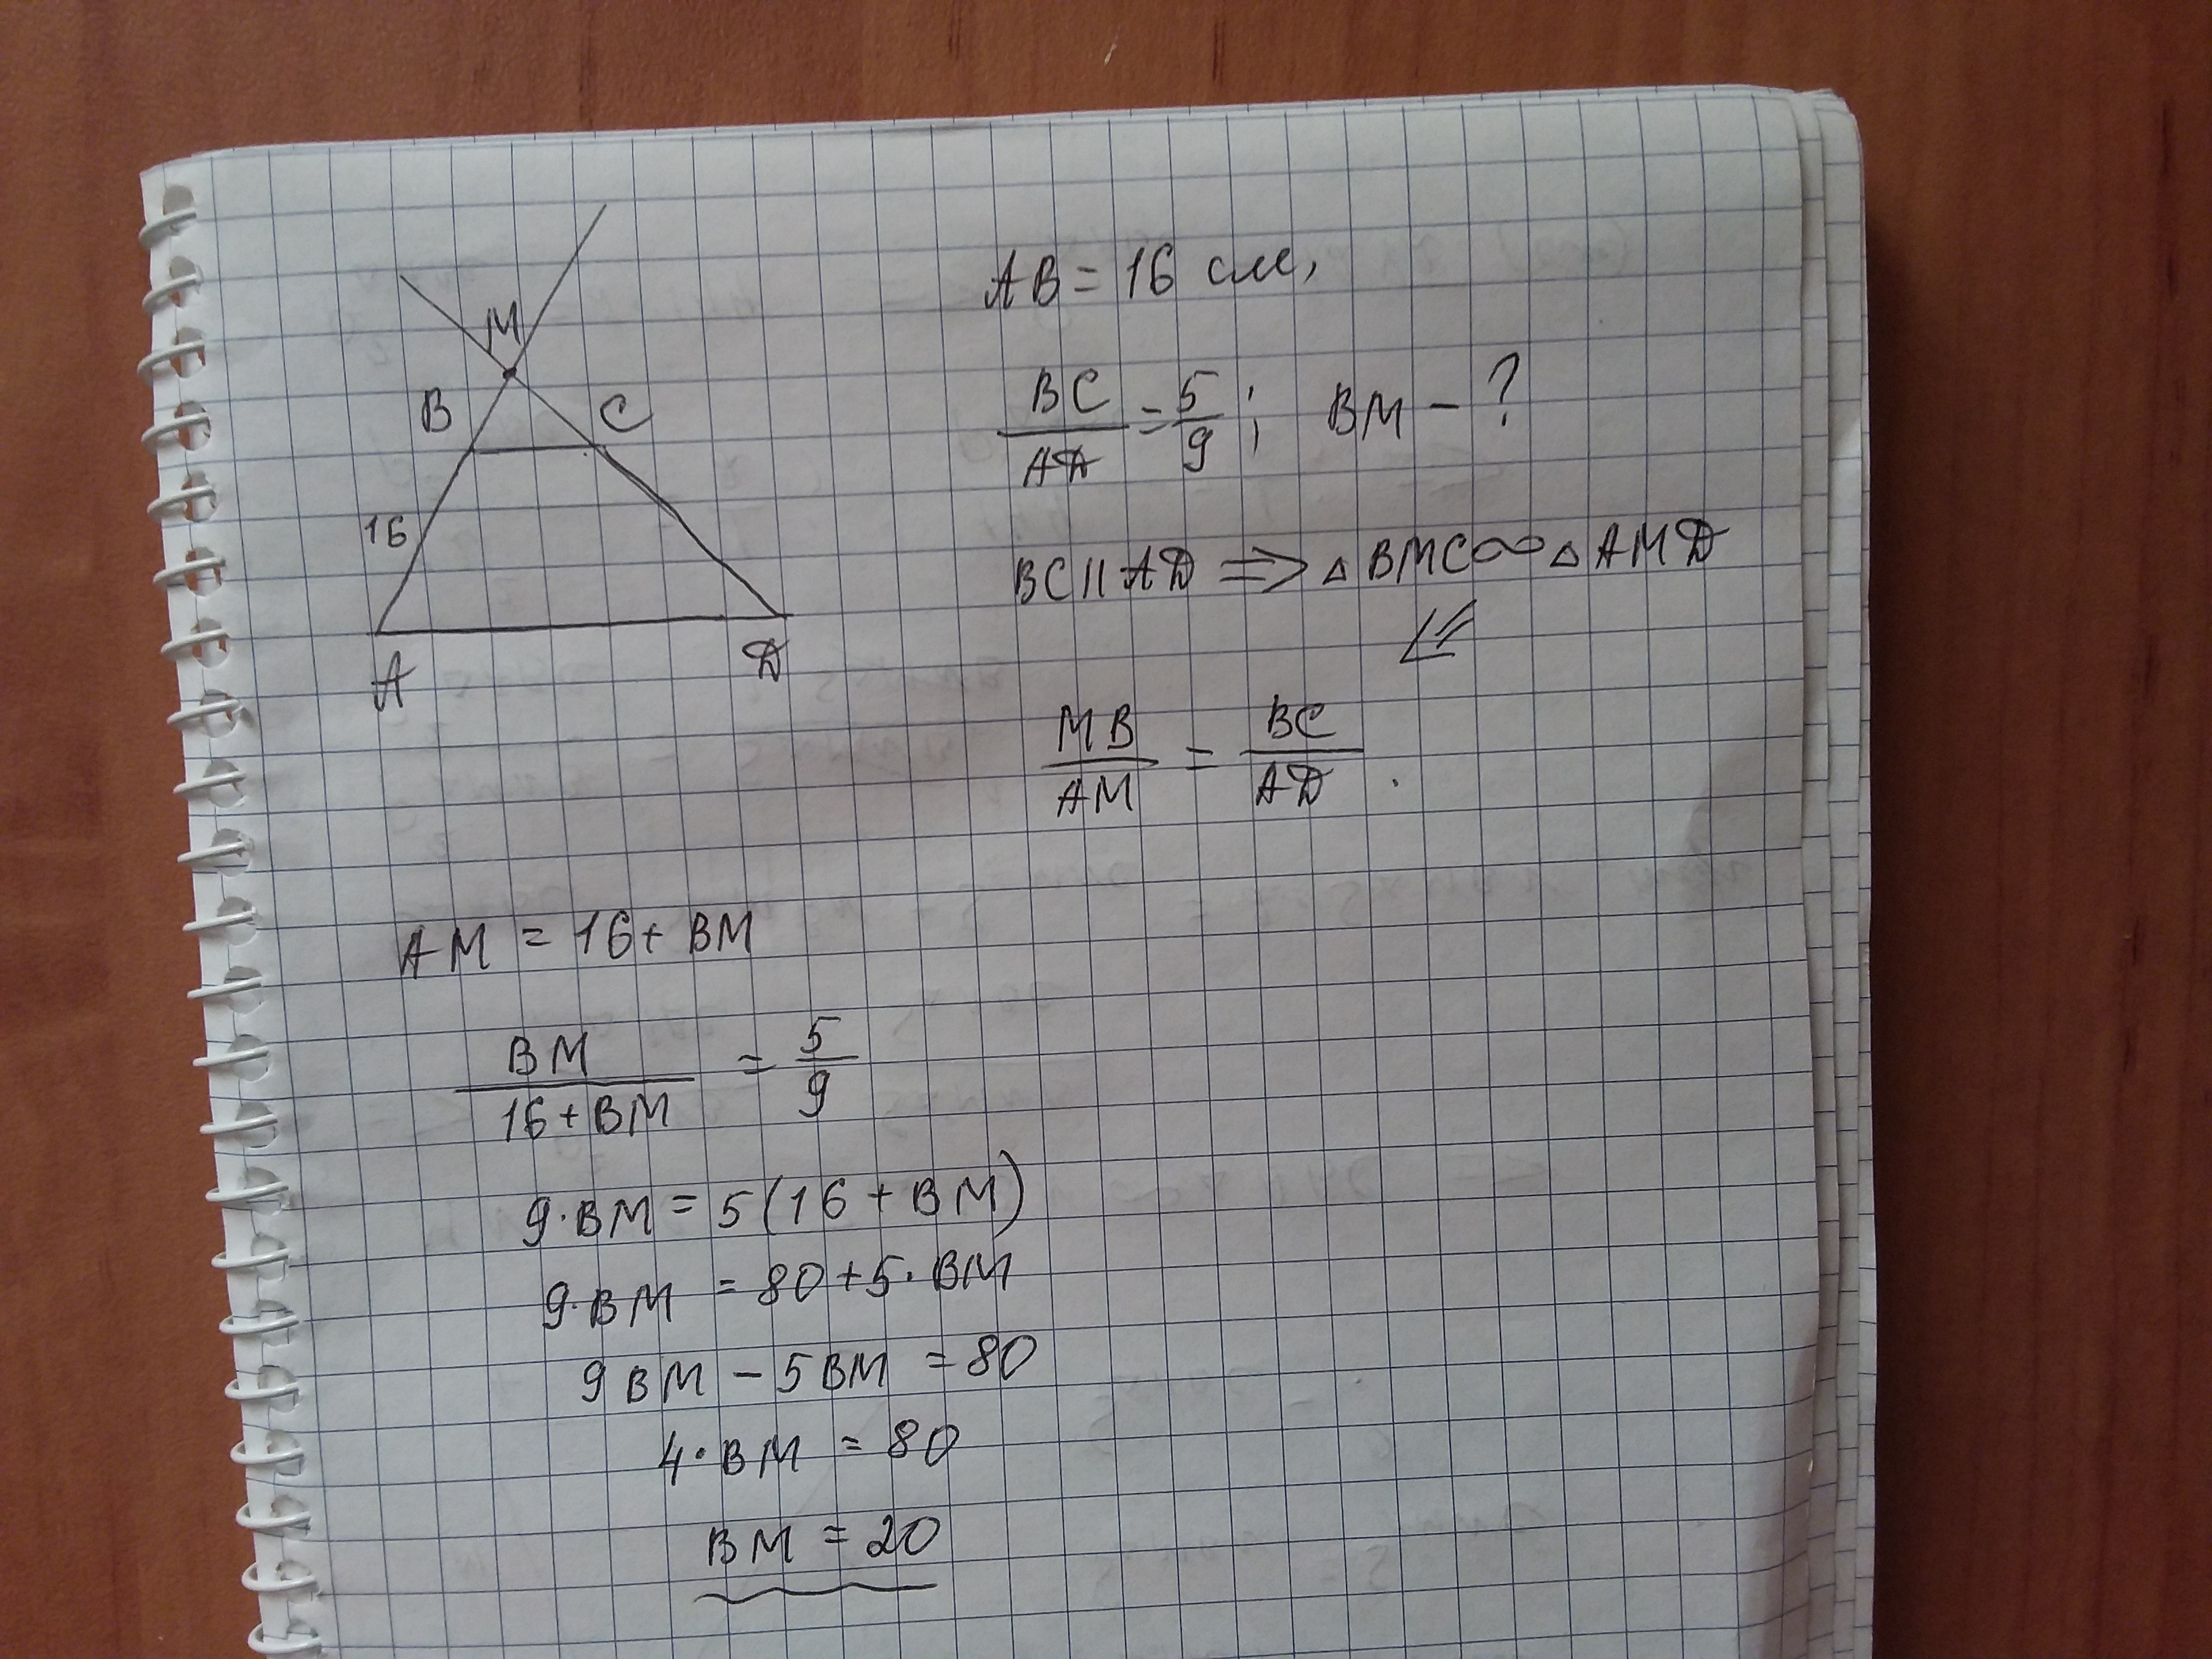 M
B C
16
A D
AB = 16 см,
BC/AD = 5/9; BM - ?
BC || AD => △BMC ∞ △AMD
⇙
MB/AM = BC/AD.
AM = 16 + BM
BM/(16 + BM) = 5/9
9·BM = 5(16 + BM)
9·BM = 80 + 5·BM
9BM - 5BM = 80
4·BM = 80
BM = 20